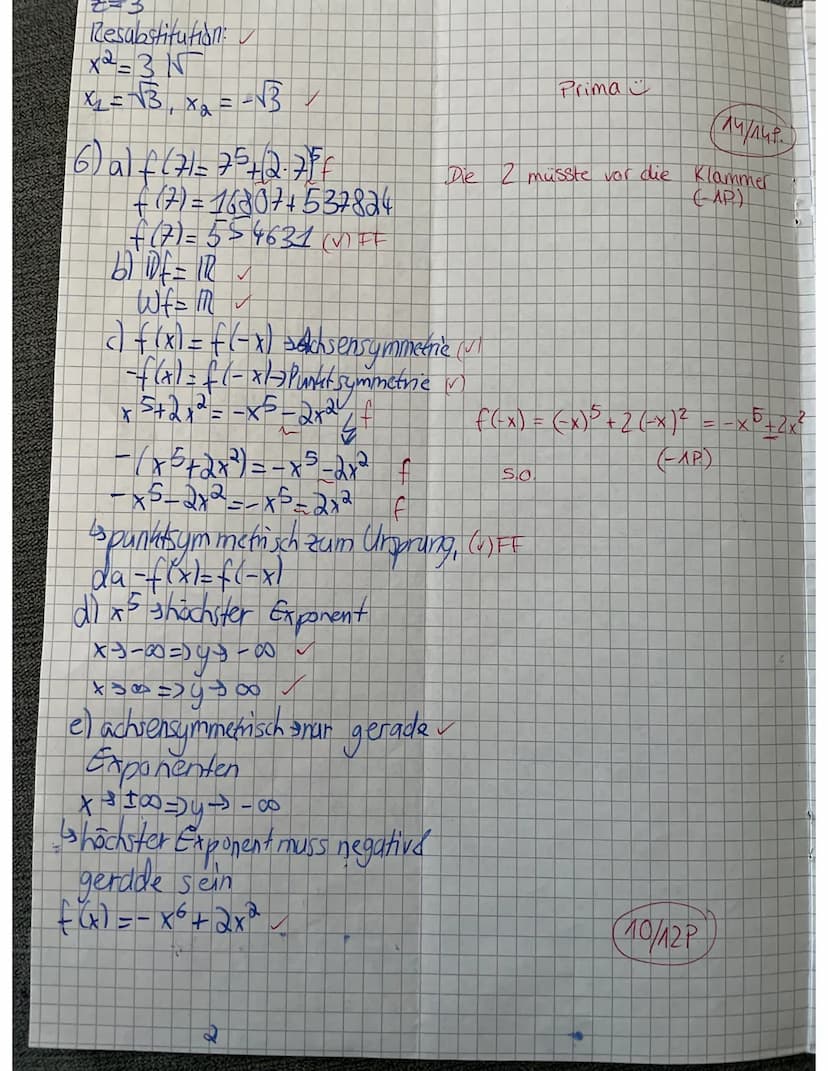 z = 3
Resubstitution: ✓
x² = 3 |√
x₁ = √3, x₂ = -√3 ✓
Prima ☺
14/14P.
6) a) f(7) = 7⁵+(2·7)⁵ f
Die 2 müsste vor die Klammer
(-1P.)
f(7) = 16807 + 537824
f(7) = 554631 (✓) FF
b) Df = ℝ ✓
Wf = ℝ ✓
c) f(x) = f(-x) → Achsensymmetrie (✓)
-f(x) = f(-x) → Punktsymmetrie (✓)
x⁵+2x² = -x⁵-2x² ↯ f
f(-x) = (-x)⁵ + 2(-x)² = -x⁵+2x²
(-1P.)
-(x⁵+2x²) = -x⁵-2x² f
s.o.
-x⁵-2x² = -x⁵-2x² f
↳ punktsymmetrisch zum Ursprung, (✓) FF
da -f(x) = f(-x)
d) x⁵ → höchster Exponent
x → -∞ => y → -∞ ✓
x → ∞ => y → ∞ ✓
e) achsensymmetrisch → nur gerade ✓
Exponenten
x → ±∞ => y → -∞
↳ höchster Exponent muss negativ &
gerade sein
f(x) = -x⁶ + 2x² ✓
10/12P
2